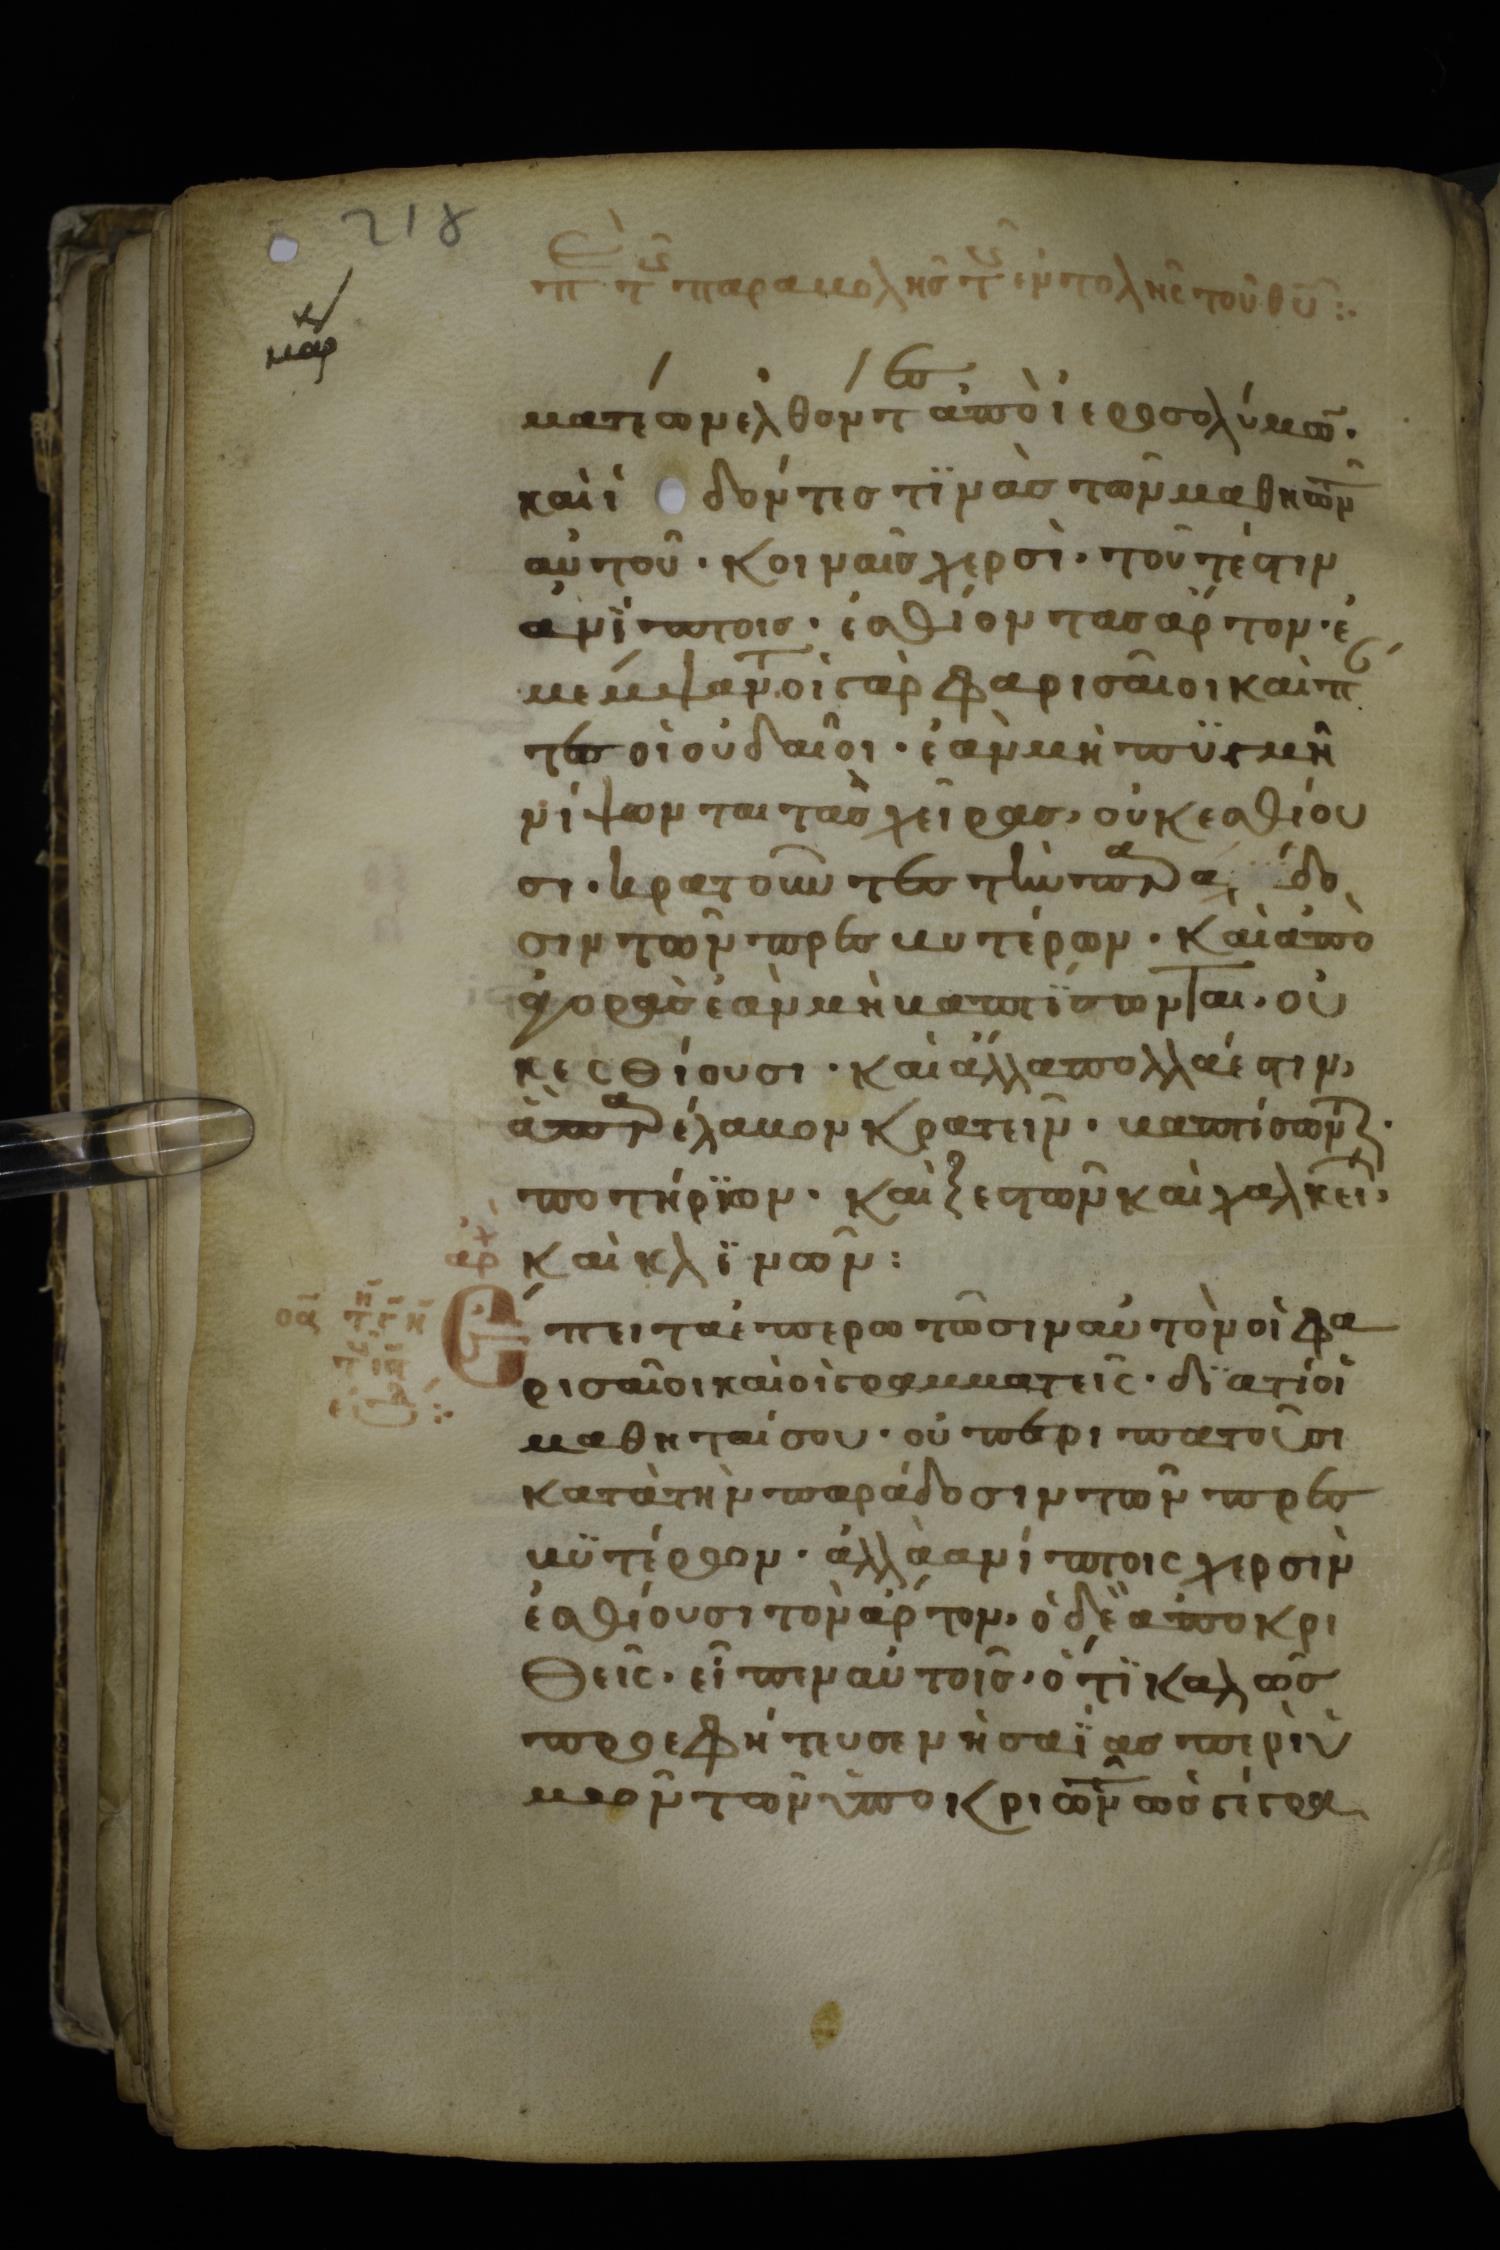 218
περὶ τῆς παραβολῆς τῆς ἐντολῆς τοῦ θυ :·
μαρ
ματέων ἐλθόντες ἀπὸ ἱεροσολύμων·
καὶ ἰδόντες τϊνὰς τῶν μαθητῶν
αὐτοῦ· κοιναῖς χερσὶ· τοῦτέστιν
ἀνΐπτοις· ἐσθίοντας ἄρτον· ἐ
μέμψαντο οἱ γὰρ φαρισαῖοι καὶ πάν
τες οἱ ἰουδαῖοι· ἐὰν μὴ πϋγμῆ
νίψωνται τὰς χεῖρας, οὐκ ἐσθίου
σι· κρατοῦντες τὴν παράδο
σιν τῶν πρεσβυτέρων· καὶ ἀπὸ
ἀγορὰς ἐὰν μὴ βαπτΐσωνται· οὐ
κ ἐσθίουσι· καὶ ἄλλα πολλά ἐστιν,
ἃ παρέλαβον κρατεῖν· βαπτίσμους·
ποτηρΐων· καὶ ξεστῶν καὶ χαλκείων,
καὶ κλϊνῶν:
ἀρχ
Ἔπειτα ἐπερωτῶσιν αὐτὸν οἱ φα
ρισαῖοι καὶ οἱ γραμματεῖς· δϊατί οἱ
μαθηταί σου· οὐ περιπατοῦσι
κατὰ τὴν παράδοσιν τῶν πρεσ
βϋτέρων· ἀλλὰ ἀνίπτοις χερσὶν
ἐσθίουσι τὸν ἄρτον, ὁ δὲ ἀποκρι
θεῖς· εἶπεν αὐτοῖς· ὅτϊ καλῶς
προεφήτευσεν ἡσαΐας περὶ ὑ
μῶν τῶν ὑποκριτῶν ὡς γέγρα